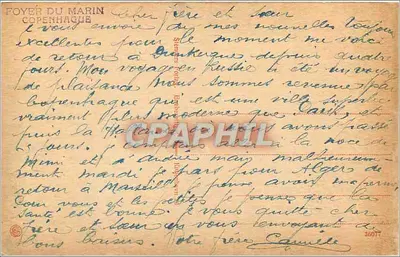 FOYER DU MARIN
COPENHAGUE
Cher frère et sœur
Je vous envoie de mes nouvelles toujours
excellentes pour le moment me voici
de retour à Dunkerque depuis quatre
jours. Mon voyage Russie a été un voyage
de plaisance nous sommes revenue par
Copenhague qui est une ville
vraiment plus moderne que Paris, et
puis la avons passé
jours. la noce de
Mimi et d'André mais malheureuse-
ment mardi je pars pour Alger de
retour à Marseille je pense avoir
Pour vous et les petits je pense que la
Santé est bonne. Je vous quitte cher
frère et sœur en vous envoyant à
tous baisers. Votre frère
CPAPHIL